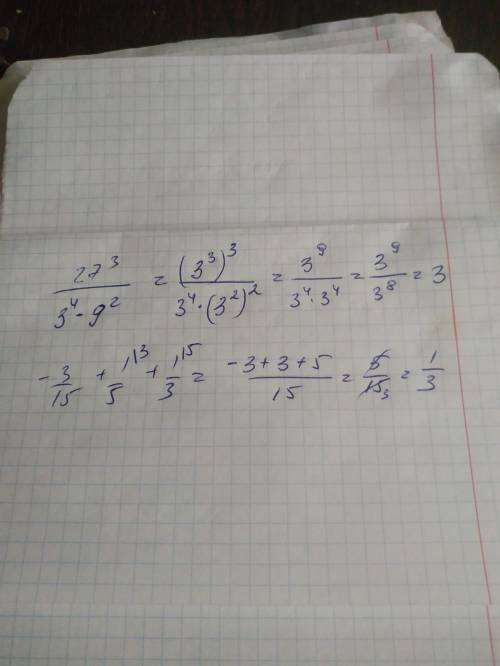 27³ / 3⁴·9² = (3³)³ / 3⁴·(3²)² = 3⁹ / 3⁴·3⁴ = 3⁹ / 3⁸ = 3
-3/15 + 1\³/5 + 1\⁵/3 = -3+3+5 / 15 = 5/15₃ = 1/3